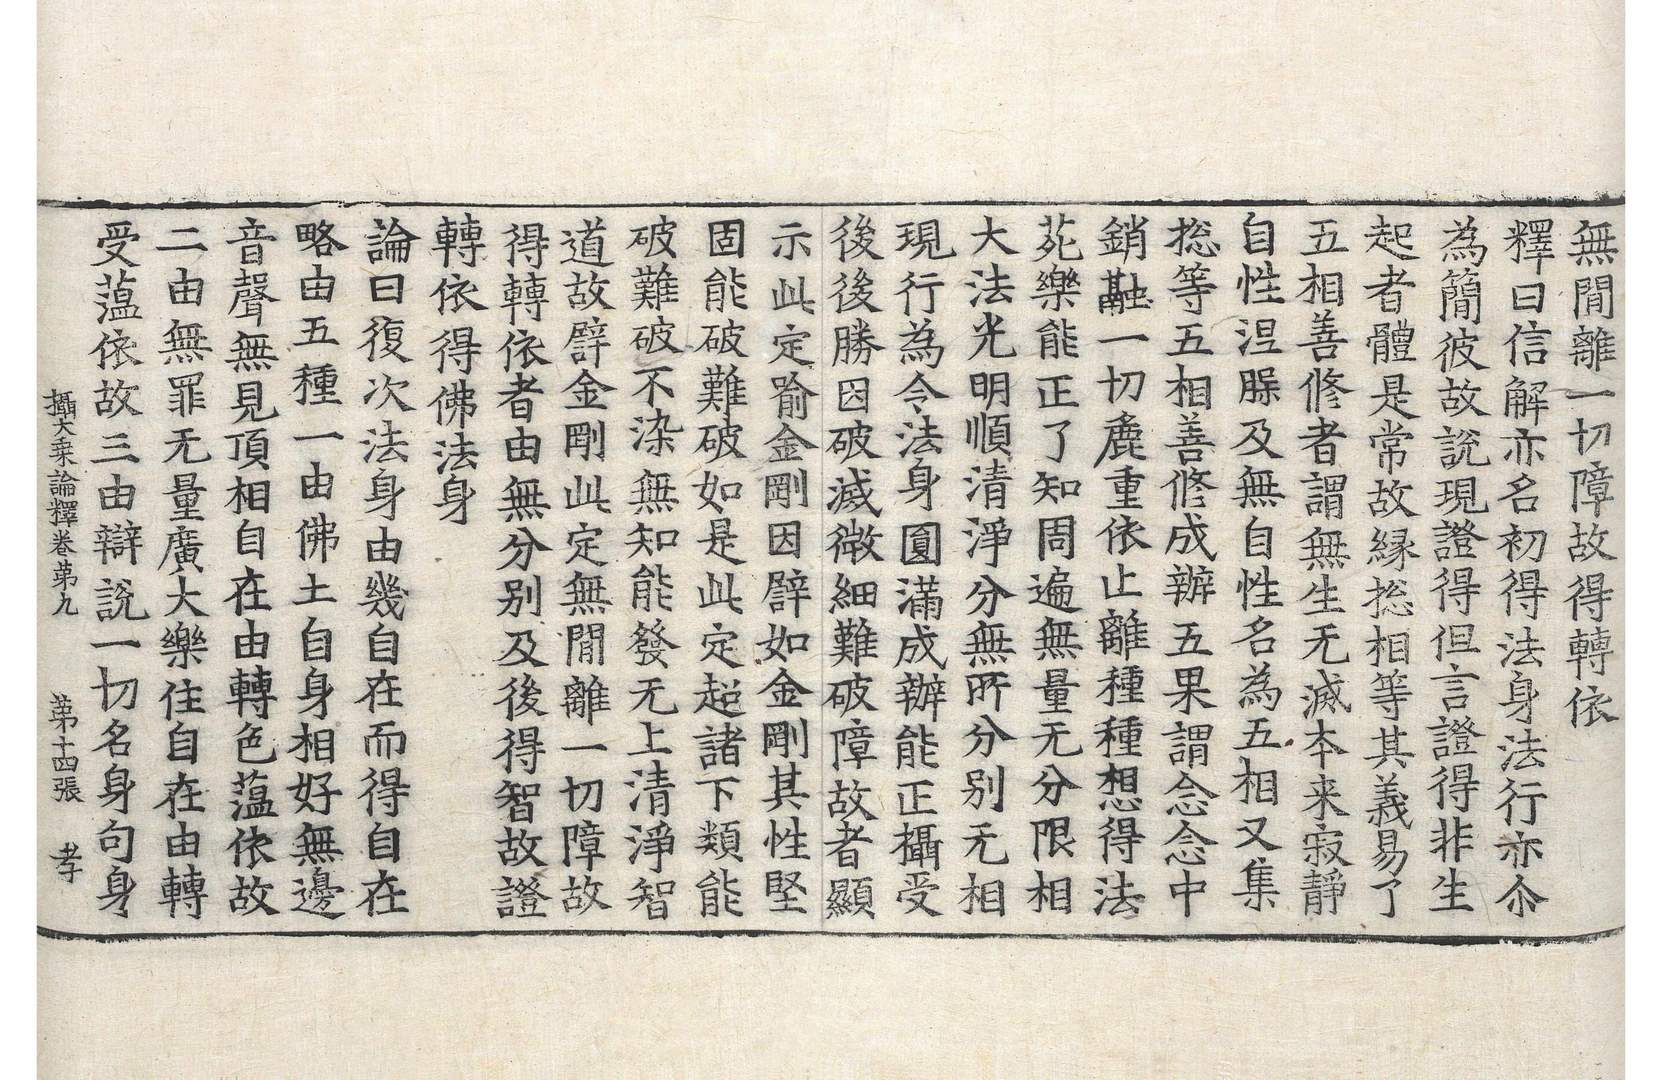 無閒離一切障故得轉依
釋曰信解亦名初得法身法行亦尒
為簡彼故說現證得但言證得非生
起者體是常故縁捴相等其義易了
五相善修者謂無生无滅本来寂靜
自性涅槃及無自性名為五相又集
捴等五相善修成辦五果謂念念中
銷融一切麁重依止離種種想得法
苑樂能正了知周遍無量无分限相
大法光明順清淨分無所分别无相
現行為令法身圓滿成辦能正攝受
後後勝因破滅微細難破障故者顯
示此定喻金剛因譬如金剛其性堅
固能破難破如是此定超諸下類能
破難破不染無知能發无上清淨智
道故譬金剛此定無閒離一切障故
得轉依者由無分别及後得智故證
轉依得佛法身
論曰復次法身由幾自在而得自在
略由五種一由佛土自身相好無邊
音聲無見頂相自在由轉色薀依故
二由無罪无量廣大樂住自在由轉
受薀依故三由辯說一切名身句身
攝大乗論釋卷第九 第十四張 孝